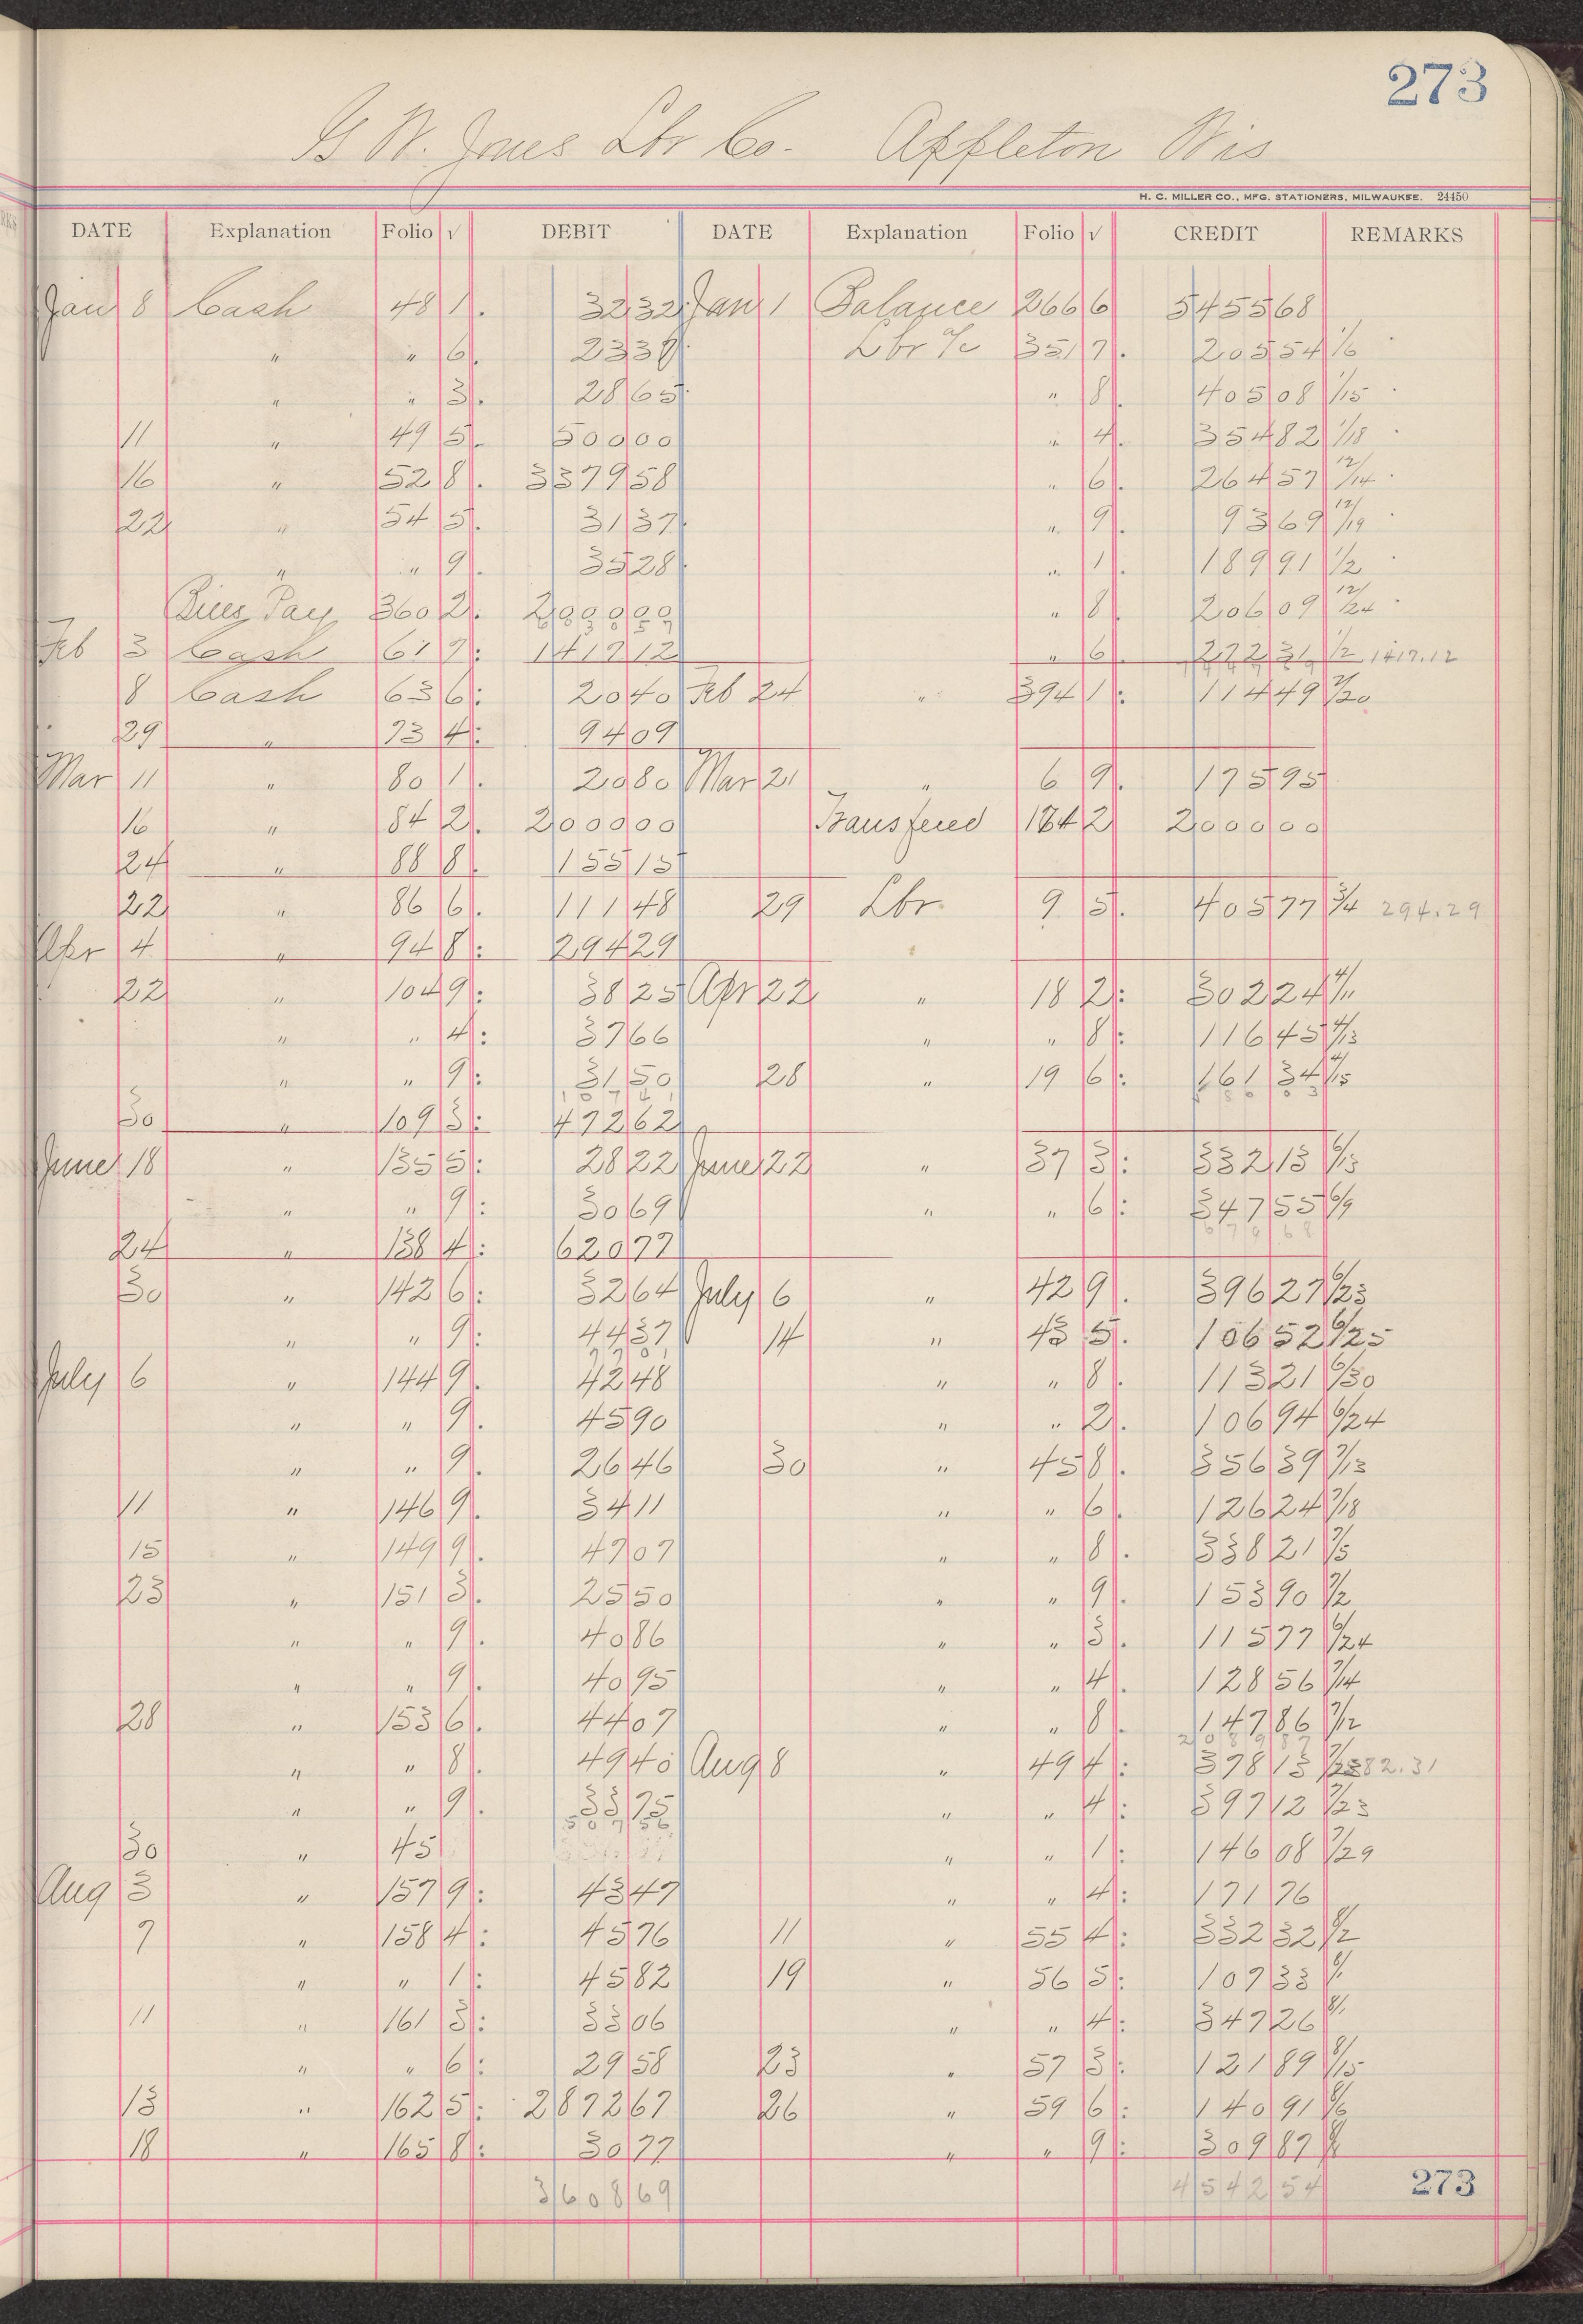 273
G W. Jones Lbr Co. Appleton Wis
H. C. MILLER CO., MFG. STATIONERS, MILWAUKEE. 24450
DATE Explanation Folio √ DEBIT DATE Explanation Folio √ CREDIT REMARKS
Jan 8 Cash 48 1. 32 32 Jan 1 Balance 266 6 5455 68
" " 6. 23 38 Lbr a/c 351 7. 205 54 1/6
" " 3. 28 65 " 8. 405 08 1/15
11 " 49 5. 500 00 " 4. 354 82 1/18
16 " 52 8. 3379 58 " 6. 264 57 12/14
22 " 54 5. 31 37 " 9. 93 69 12/19
" " 9. 35 28 " 1. 189 91 1/2
Bills Pay 360 2. 2000 00 " 8. 206 09 12/24
Feb 3 Cash 61 7: 1417 12 " 6. 272 31 1/2 1417.12
8 Cash 63 6: 20 40 Feb 24 " 394 1: 114 49 2/20
29 " 73 4: 94 09
Mar 11 " 80 1. 20 80 Mar 21 " 6 9. 175 95
16 " 84 2. 2000 00 Transfered 184 2 2000 00
24 " 88 8. 155 15
22 " 86 6. 111 48 29 Lbr 9 5. 405 77 3/4 294.29
Apr 4 " 94 8: 294 29
22 " 104 9: 38 25 Apr 22 " 18 2: 302 24 4/11
" " 4: 37 66 " " 8: 116 45 4/13
" " 9: 31 50 28 " 19 6: 161 34 4/15
107 41
30 " 109 3: 472 62
June 18 " 135 5: 28 22 June 22 " 37 3: 332 13 6/13
" " 9: 30 69 " " 6: 347 55 6/9
679 68
24 " 138 4: 620 77
30 " 142 6: 32 64 July 6 " 42 9. 396 27 6/23
" " 9: 44 37 14 " 43 5. 106 52 6/25
77 01
July 6 " 144 9. 42 48 " " 8. 113 21 6/30
" " 9. 45 90 " " 2. 106 94 6/24
" " 9. 26 46 30 " 45 8. 356 39 7/13
11 " 146 9. 34 11 " " 6. 126 24 7/18
15 " 149 9. 47 07 " " 8. 338 21 7/5
23 " 151 3. 25 50 " " 9. 153 90 7/2
" " 9. 40 86 " " 3. 115 77 6/24
" " 9. 40 95 " " 4. 128 56 7/14
28 " 153 6. 44 07 " " 8. 147 86 7/12
2089 87
" " 8. 49 40 Aug 8 " 49 4: 378 13
" " 9. 33 75 " " 4: 397 12 7/23
507 56
30 " 45 " " 1: 146 08 7/29
Aug 3 " 157 9: 43 47 " " 4: 171 76
7 " 158 4: 45 76 11 " 55 4: 332 32 8/2
" " 1: 45 82 19 " 56 5: 107 33
11 " 161 3: 33 06 " " 4: 347 26
" " 6: 29 58 23 " 57 3: 121 89 8/15
13 " 162 5: 2872 67 26 " 59 6: 140 91 8/6
18 " 165 8: 30 77 " " 9: 309 87
3608 69 4542 54 273